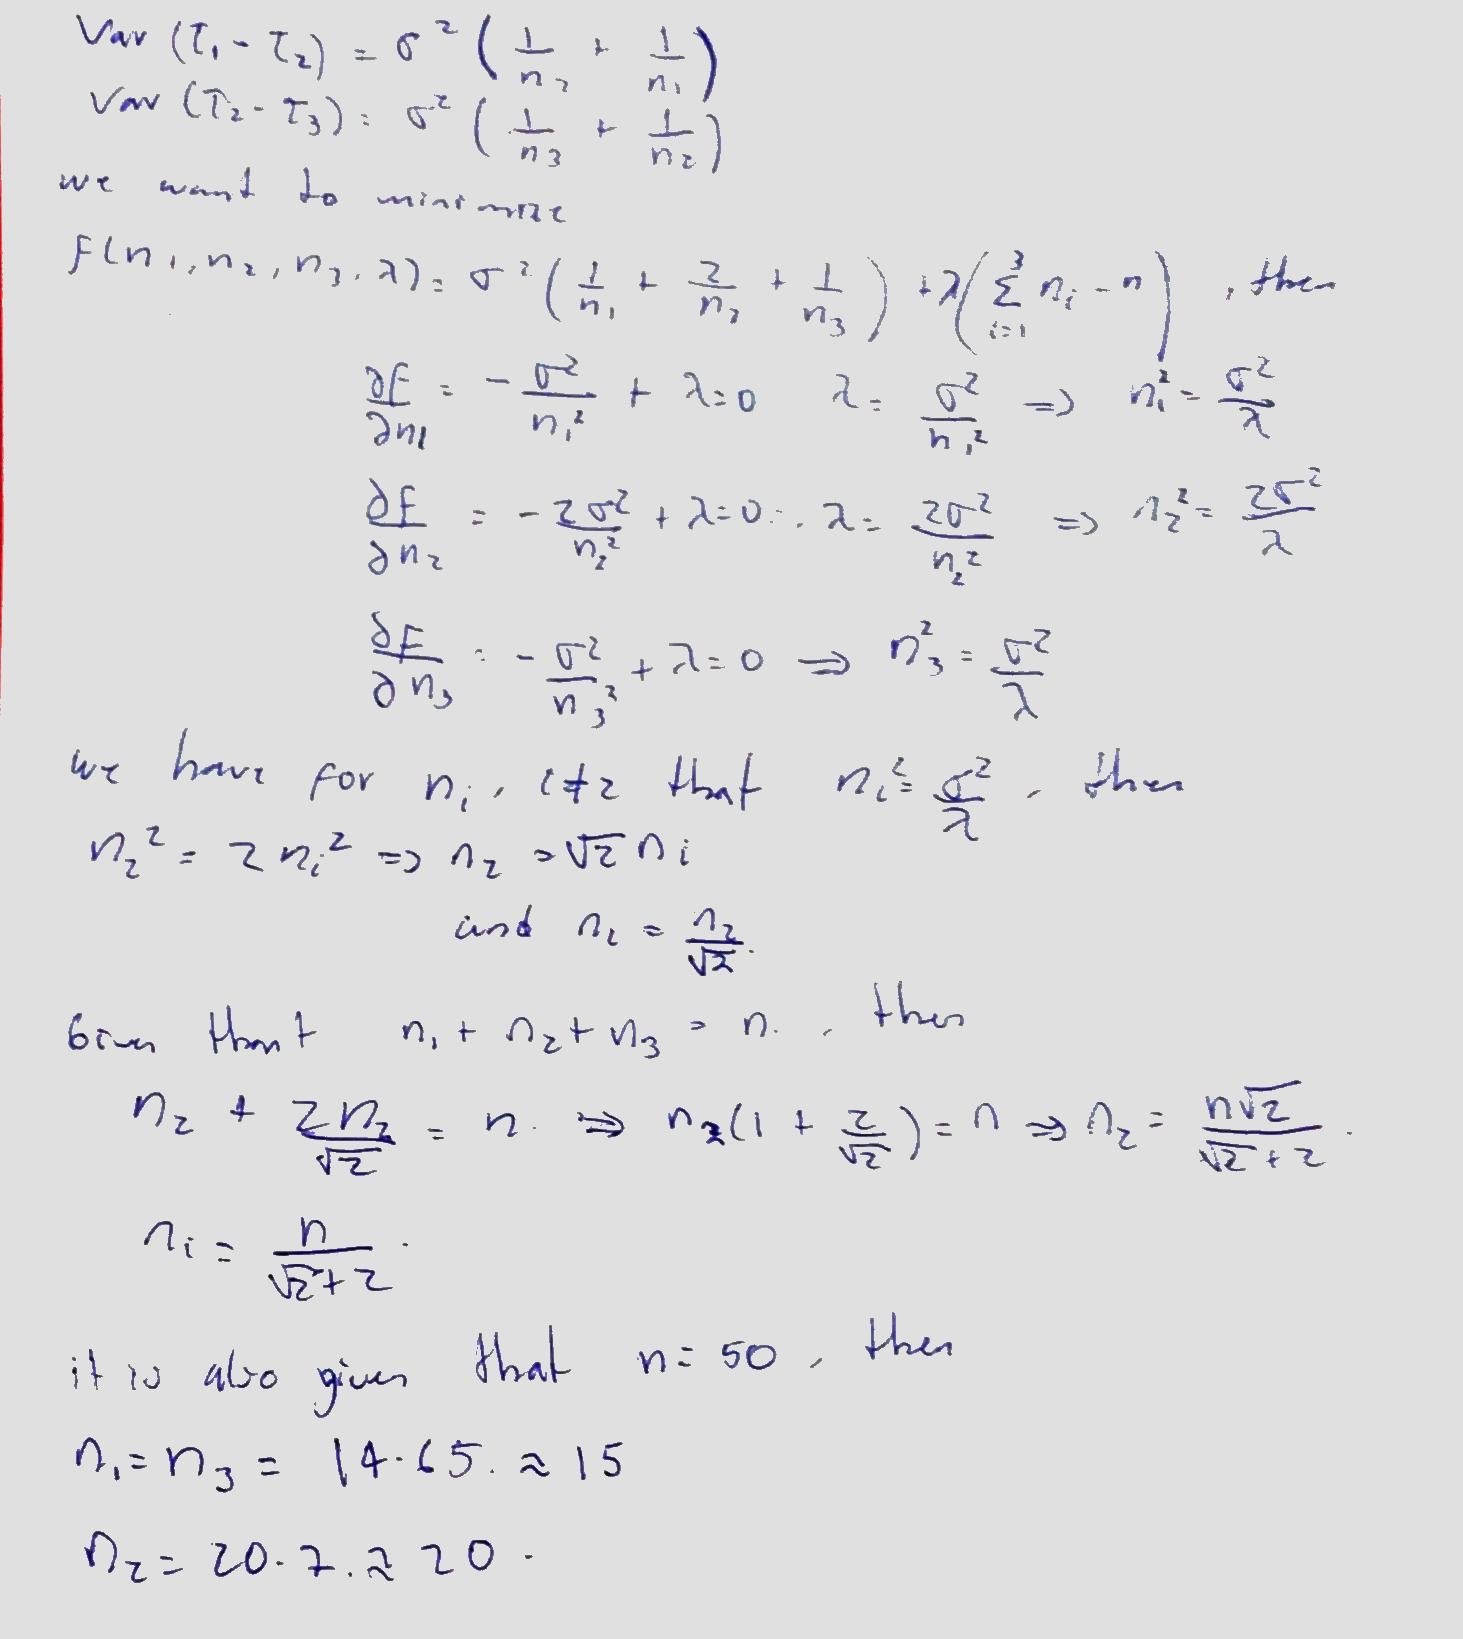 Var (τ₁ - τ₂) = σ² ( 1/n₂ + 1/n₁ )
Var (τ₂ - τ₃) = σ² ( 1/n₃ + 1/n₂ )
we want to minimize
F(n₁, n₂, n₃, λ) = σ² ( 1/n₁ + 2/n₂ + 1/n₃ ) + λ ( Σ_{i=1}^{3} n_i - n ) , then
∂F/∂n₁ = - σ²/n₁² + λ = 0 λ = σ²/n₁² => n₁² = σ²/λ
∂F/∂n₂ = - 2σ²/n₂² + λ = 0 ∴ λ = 2σ²/n₂² => n₂² = 2σ²/λ
∂F/∂n₃ = - σ²/n₃² + λ = 0 => n₃² = σ²/λ
we have for n_i, i≠2 that n_i² = σ²/λ , then
n₂² = 2 n_i² => n₂ = √2 n_i
and n_i = n₂/√2 .
Given that n₁ + n₂ + n₃ = n. , then
n₂ + 2n₂/√2 = n. => n₂(1 + 2/√2) = n => n₂ = n√2/(√2 + 2) .
n_i = n/(√2 + 2) .
it is also given that n = 50 , then
n₁ = n₃ = 14.65. ≈ 15
n₂ = 20.7. ≈ 20 .